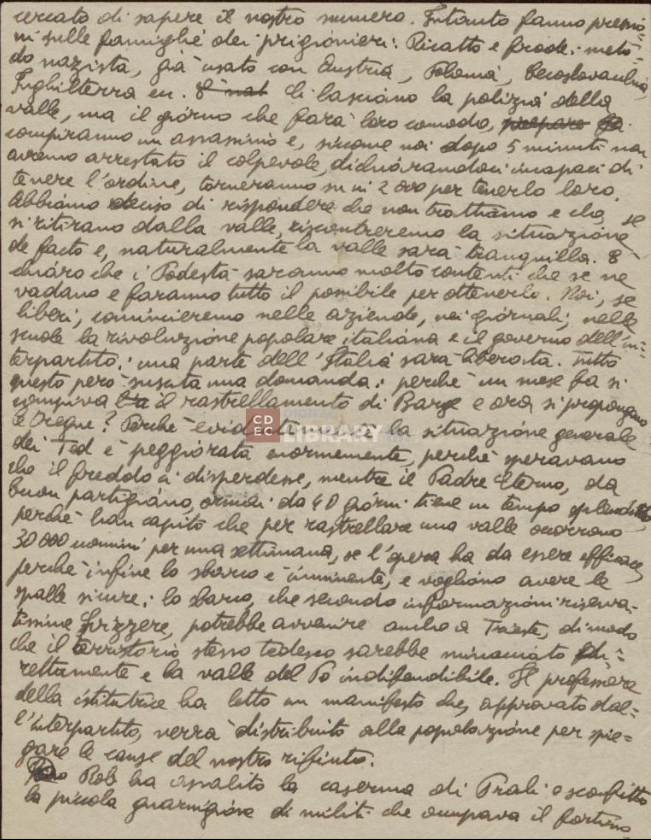 cercato di sapere il nostro numero. Intanto fanno pressio-
ni sulle famiglie dei prigionieri: Ricatto e frode: meto-
do nazista, già usato con Austria, Polonia, Cecoslovacchia,
Inghilterra ecc. Ci lasciano la polizia della
valle, ma il giorno che farà loro comodo,
compiranno un assassinio e, siccome noi dopo 5 minuti non
avremo arrestato il colpevole, dichiarandoci incapaci di
tenere l'ordine, torneranno su in 2000 per tenerlo loro.
Abbiamo deciso di rispondere che non trattiamo e che se
si ritirano dalla valle, riscontreremo la situazione
de facto e, naturalmente la valle sarà tranquilla. È
chiaro che i Podestà saranno molto contenti che se ne
vadano e faranno tutto il possibile per ottenerlo. Noi, se
liberi, cominceremo nelle aziende, nei giornali, nelle
scuole la rivoluzione popolare italiana e il governo dell'in-
terpartito: una parte dell'Italia sarà liberata. Tutto
questo però suscita una domanda: perchè un mese fa si
compiva il rastrellamento di Barge e ora si propongono
le tregue? Perchè evidentemente la situazione generale
dei Ted è peggiorata enormemente, perchè speravano
che il freddo ci disperdesse, mentre il Padre Eterno, da
buon partigiano, ormai da 40 giorni tiene un tempo splendido
perchè han capito che per rastrellare una valle occorrono
30000 uomini per una settimana, se l'opera ha da essere efficace,
perchè infine lo sbarco è imminente, e vogliono avere le
spalle sicure; lo sbarco, che secondo informazioni riserva-
tissime svizzere, potrebbe avvenire anche a Trieste, di modo
che il territorio stesso tedesco sarebbe minacciato di-
rettamente e la valle del Po indifendibile. Il professore
della istitutrice ha letto un manifesto che, approvato dal-
l'interpartito, verrà distribuito alla popolazione per spie-
gare le cause del nostro rifiuto.
Rob ha assalito la caserma di Prali e sconfitto
la piccola guarnigione di militi che occupava il fortino
CDEC
LIBRARY